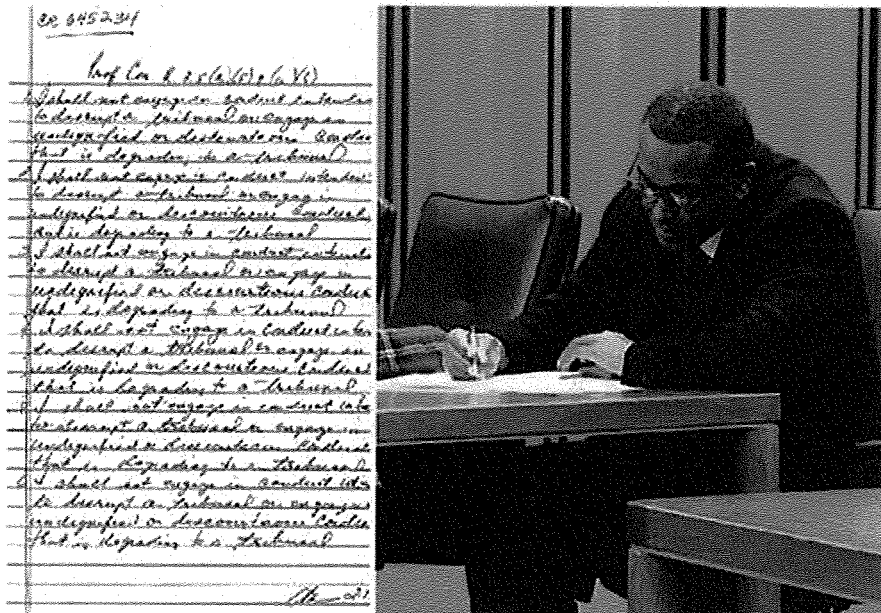 CR
Prof Con R 3.5(a)(5)
I shall not engage in conduct
to disrupt a tribunal or engage in
undignified or conduct
that is degrading to a tribunal
I shall not engage in conduct
to disrupt a tribunal or engage in
undignified or discourteous conduct
that is degrading to a tribunal
I shall not engage in conduct
to disrupt a tribunal or engage in
undignified or discourteous conduct
that is degrading to a tribunal
I shall not engage in conduct
to disrupt a tribunal or engage in
undignified or discourteous conduct
that is degrading to a tribunal
I shall not engage in conduct
to disrupt a tribunal or engage in
undignified or discourteous conduct
that is degrading to a tribunal
I shall not engage in conduct
to disrupt a tribunal or engage in
undignified or discourteous conduct
that is degrading to a tribunal